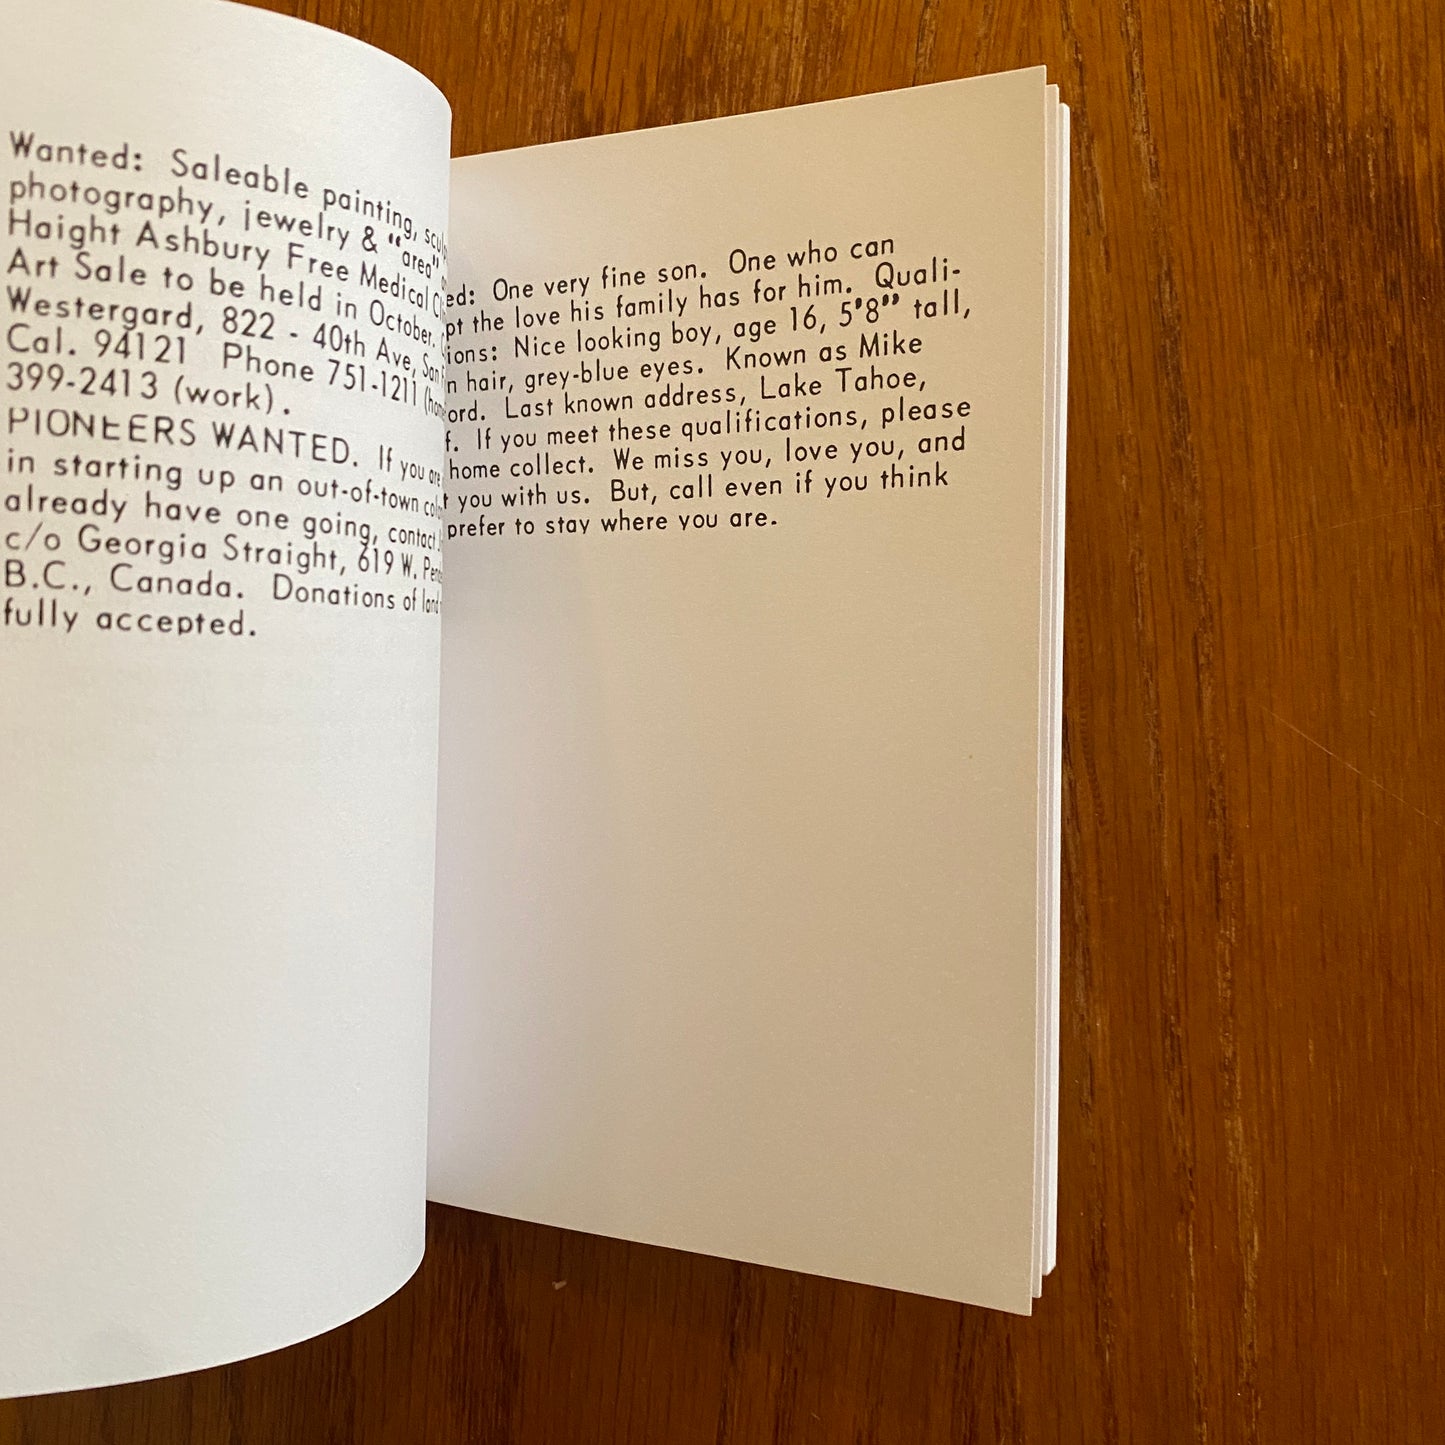 Wanted: Saleable painting,
photography, jewelry & "area"
Haight Ashbury Free Medical
Art Sale to be held in October.
Westergard, 822 - 40th Ave,
Cal. 94121 Phone 751-1211
399-2413 (work).
PIONEERS WANTED. If you are
in starting up an out-of-town
already have one going, contact
c/o Georgia Straight, 619 W.
B.C., Canada. Donations of land
fully accepted.
ed: One very fine son. One who can
pt the love his family has for him. Quali-
ions: Nice looking boy, age 16, 5'8" tall,
n hair, grey-blue eyes. Known as Mike
ord. Last known address, Lake Tahoe,
f. If you meet these qualifications, please
home collect. We miss you, love you, and
t you with us. But, call even if you think
prefer to stay where you are.